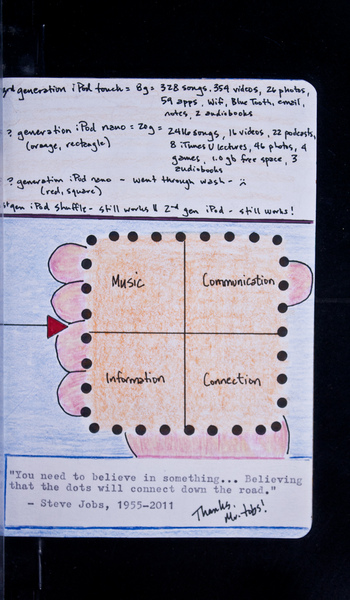 3rd generation iPod touch = 8g = 328 songs, 354 videos, 26 photos,
59 apps, Wifi, Blue Tooth, email,
notes, 2 audiobooks
? generation iPod nano = 20g = 2416 songs, 16 videos, 22 podcasts,
(orange, rectangle) 8 iTunes U lectures, 46 photos, 4
games, 1.0 gb free space, 3
audiobooks
? generation iPod nano - went through wash - :(
(red, square)
1st gen iPod Shuffle - still works!! 2nd gen iPod - still works!
Music Communication
Information Connection
"You need to believe in something... Believing
that the dots will connect down the road."
- Steve Jobs, 1955-2011
Thanks,
Mr. Jobs!